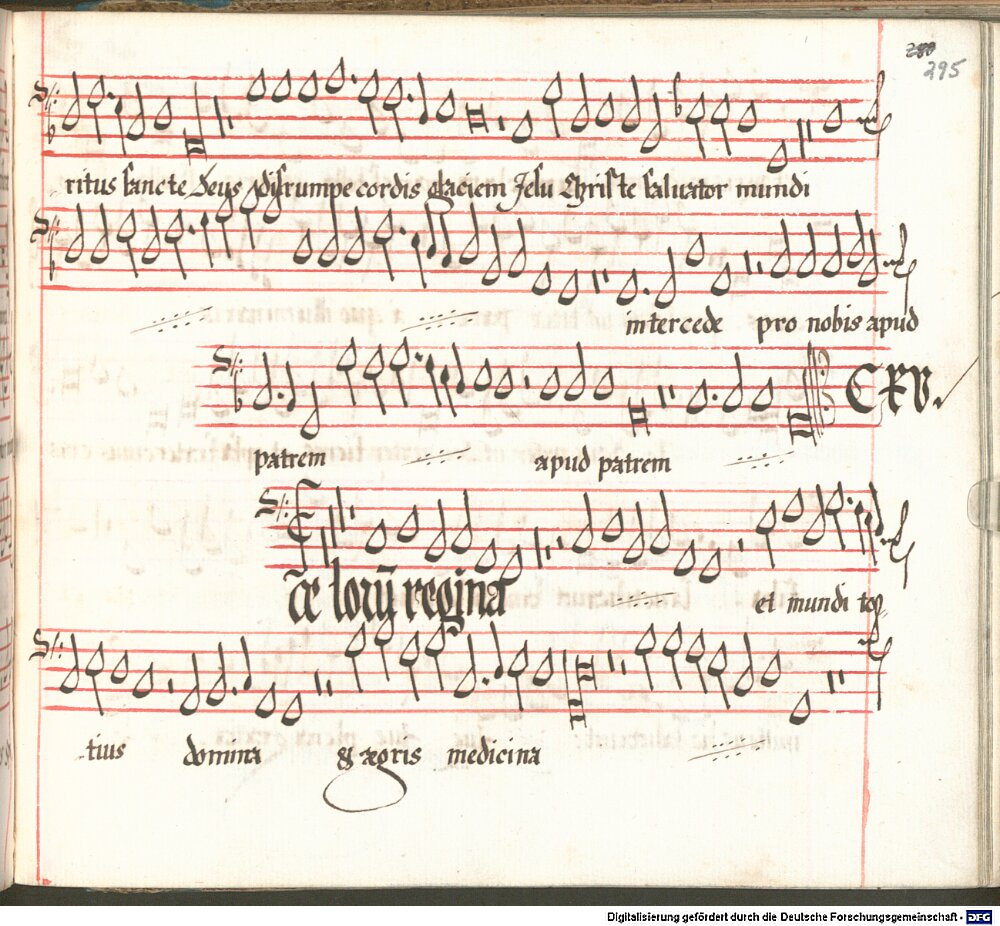 295
ritus sancte Deus disrumpe cordis glaciem Jesu Christe saluator mundi
intercede pro nobis apud
CXV.
patrem apud patrem
Cœlorũ regina et mundi to
tius domina & ægris medicina
Digitalisierung gefördert durch die Deutsche Forschungsgemeinschaft - DFG